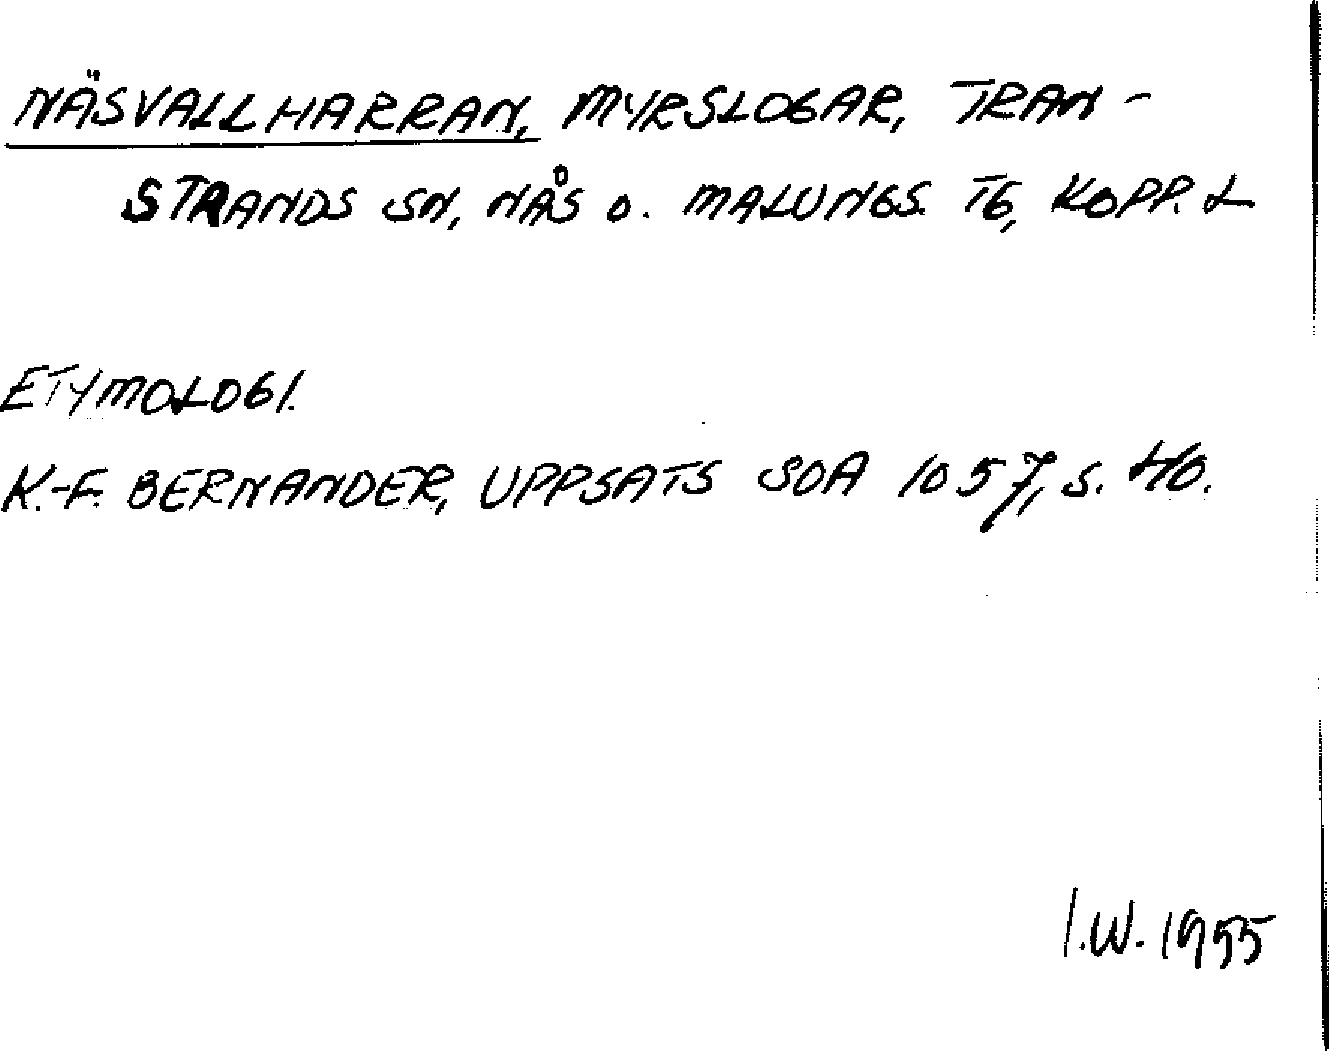 NÄSVALLHARRAN, MYRSLOGAR, TRAN-
STRANDS SN, NÅS O. MALUNGS TG, KOPP. L
ETYMOLOGI.
K.-F. BERNANDER, UPPSATS SOA 1057, S. 40.
I.W. 1955